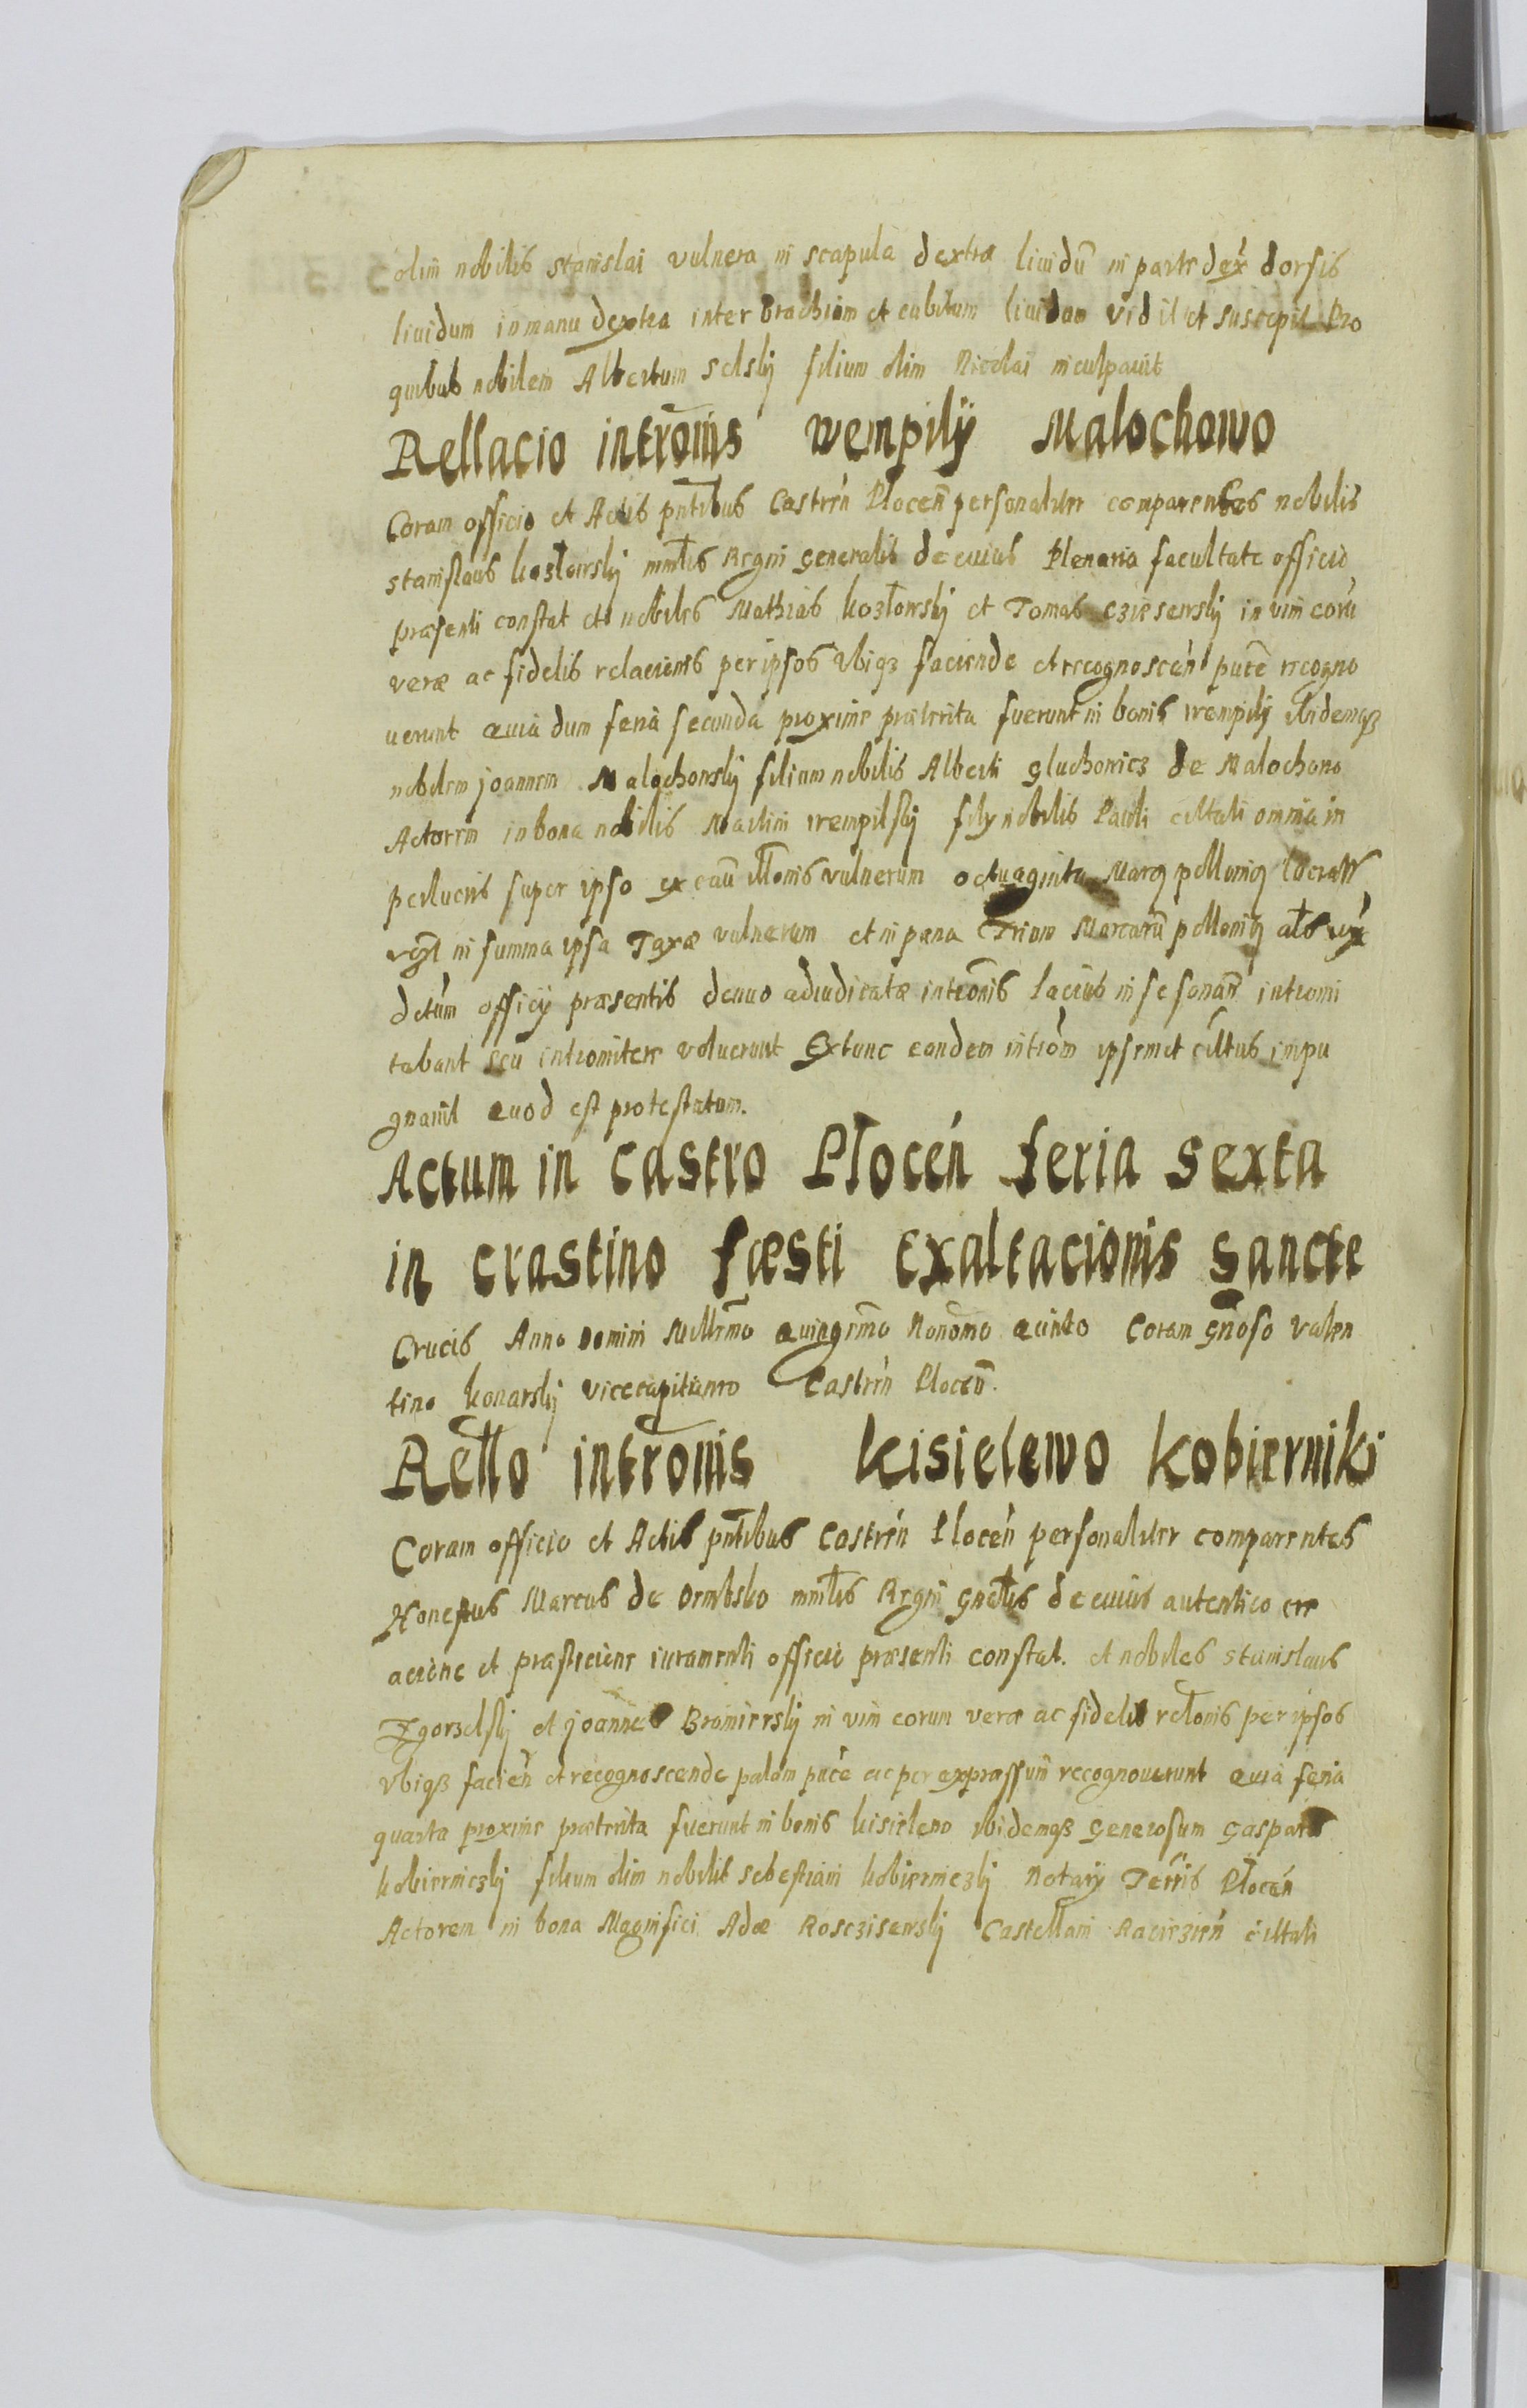 olim nobilis stanislai vulnera in scapula dextra liuidū in parte dex dorsis
liuidum in manu dextra inter brachium et cubitum liuidum vidit et suscepit Pro
quibus nobilem Albertum selsky filium olim Nicolai inculpauit
Rellacio intromis wempily Malochowo
Coram officio et Actis pntibus Castren Plocen personaliter comparentes nobilis
stanislaus kozlowsky mnlis Regni generalis de cuius Plenaria facultate officio
præsenti constat et nobiles Mathias kozłowsky et Tomas in vim eorū
veræ ac fidelis relacionis per ipsos vbiqз faciende et recognoscen pute recogno
uerunt quia dum feria secunda proxime præterita fuerunt in bonis wempily ibidemqз
nobilem joannem Malochowsky filium nobilis Alberti gluchowicz de Malochowo
Actorem in bona nobilis Martini wempilsky fily nobilis Pauli citati omnia in
perlucris super ipso ex cau vulnerum octuaginta Marcq pollonicq
in summa ipsa Taxæ vulnerum et in pæna Trium Marcarū pollonicq als
officy præsentis denuo adiudicatæ intromis lacius in se sonan intromi
tabant seu intromitere voluerunt Extunc eandem introm ipsemet citatus impu
gnauit quod est protestatum.
Actum in Castro Plocen feria sexta
in crastino fæsti Exaltacionis sancte
Crucis Anno Domini Millimo quingemo Nonomo quinto Coram gnoso valen
tino konarsky vicecapitaneo Castren Plocen.
Rello intromis kisielewo kobierniki
Coram officio et Actis pntibus Castren Plocen personaliter comparentes
Honestus Marcus de mnlis Regni gnalis de cuius autentico cre
acione et præsticione iuramenti officio præsenti constat. et nobiles stanislaus
Zgorzelsky et joannes Bromiersky in vim eorum veræ ac fidelis relonis per ipsos
vbiqз facien et recognoscende palam puce ac per expressum recognouerunt quia feria
quarta proxime præterita fuerunt in bonis kisielewo ibidemqз generosum gaspar
kobierniczky filium olim nobilis sebestiani kobierniczky Notary Terris Plocen
Actorem in bona Magnifici Adæ Rosczisewsky Castellani Racirzien citati